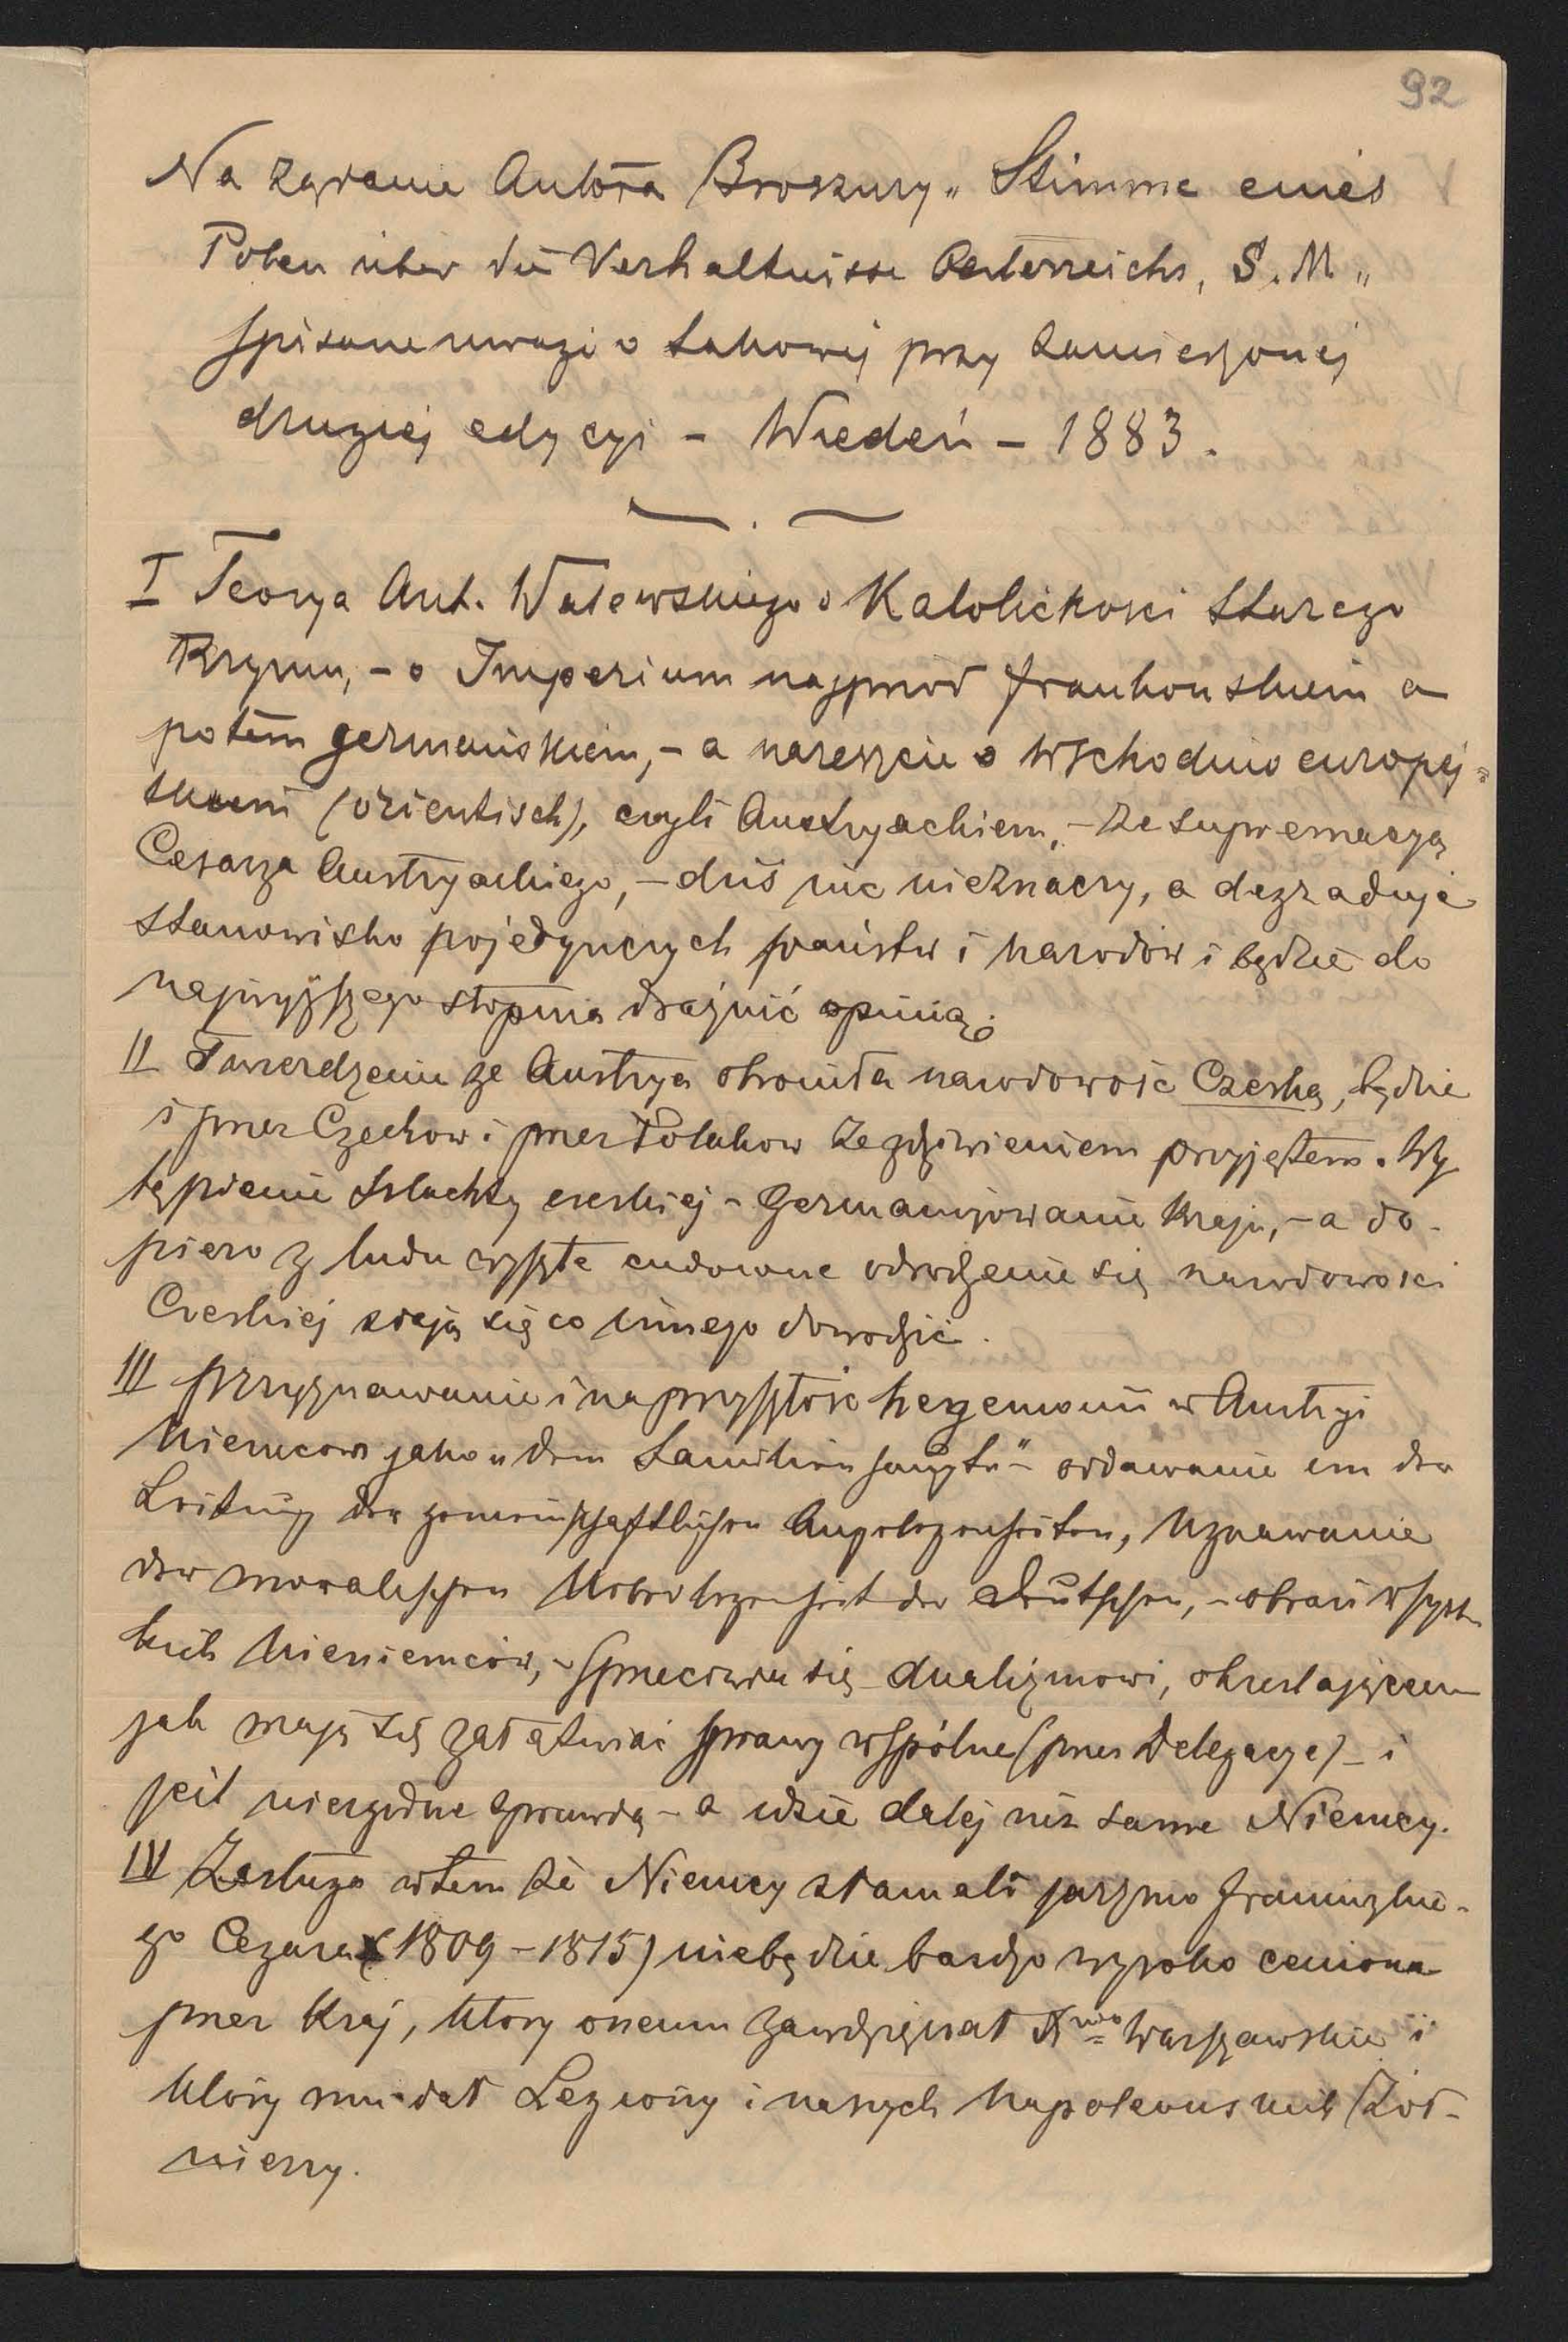 92
Na żądanie Autora Broszury „Stimme eines
Polen über die Verhältnisse Oesterreichs, S. M„
spisane uwagi o takowej przy zamierzonej
drugiej edycyi – Wiedeń – 1883.
I Teorya Ant. Walewskiego o Katolickości starego
Rzymu, – o Imperium najprzód frankońskiem a
potem germańskiem, – a nareszcie o wschodnio europej=
skiem (orientisch), czyli Austryackiem, – ze supremacyą
Cesarza Austryackiego, – dziś nic nieznaczy, a degraduje
stanowisko pojedynczych państw i narodów i będzie do
najwyższego stopnia drażnić opinią.
II Twierdzenie że Austrya obroniła narodowość Czeską, będzie
i przez Czechow i przez Polakow ze zdziwieniem przyjętem. Wy
tępienie szlachty czeskiej – germanizowanie kraju, – a do-
piero z ludu wyszłe cudowne odrodzenie się narodowości
Czeskiej zdają się co innego dowodzić.
III Przyznawanie i na przyszłość hegemonii w Austryi
Niemcom jako „dem Familienhaupte" – oddawanie im der
Leitung der gemeinschaftlichen Angelegenheiten, uznawanie
der moralischen Ueberlegenheit der Deutschen, – obrazi wszyst
kich Nieniemców, – sprzeciwia się dualizmowi, określającemu
jak mają się załatwiać sprawy wspólne (przez Delegacye) – i
jest niezgodne z prawdą – a idzie dalej niż same Niemcy.
IV Zasługa w tem że Niemcy złamali jarzmo francuzkie-
go Cezara (1809 – 1815) niebędzie bardzo wysoko ceniona
przez kraj, który onemu zawdzięczał X<sup>wo</sup> Warszawskie i
który mu dał Legiony i naszych Napoleonskich Żoł-
nierzy.